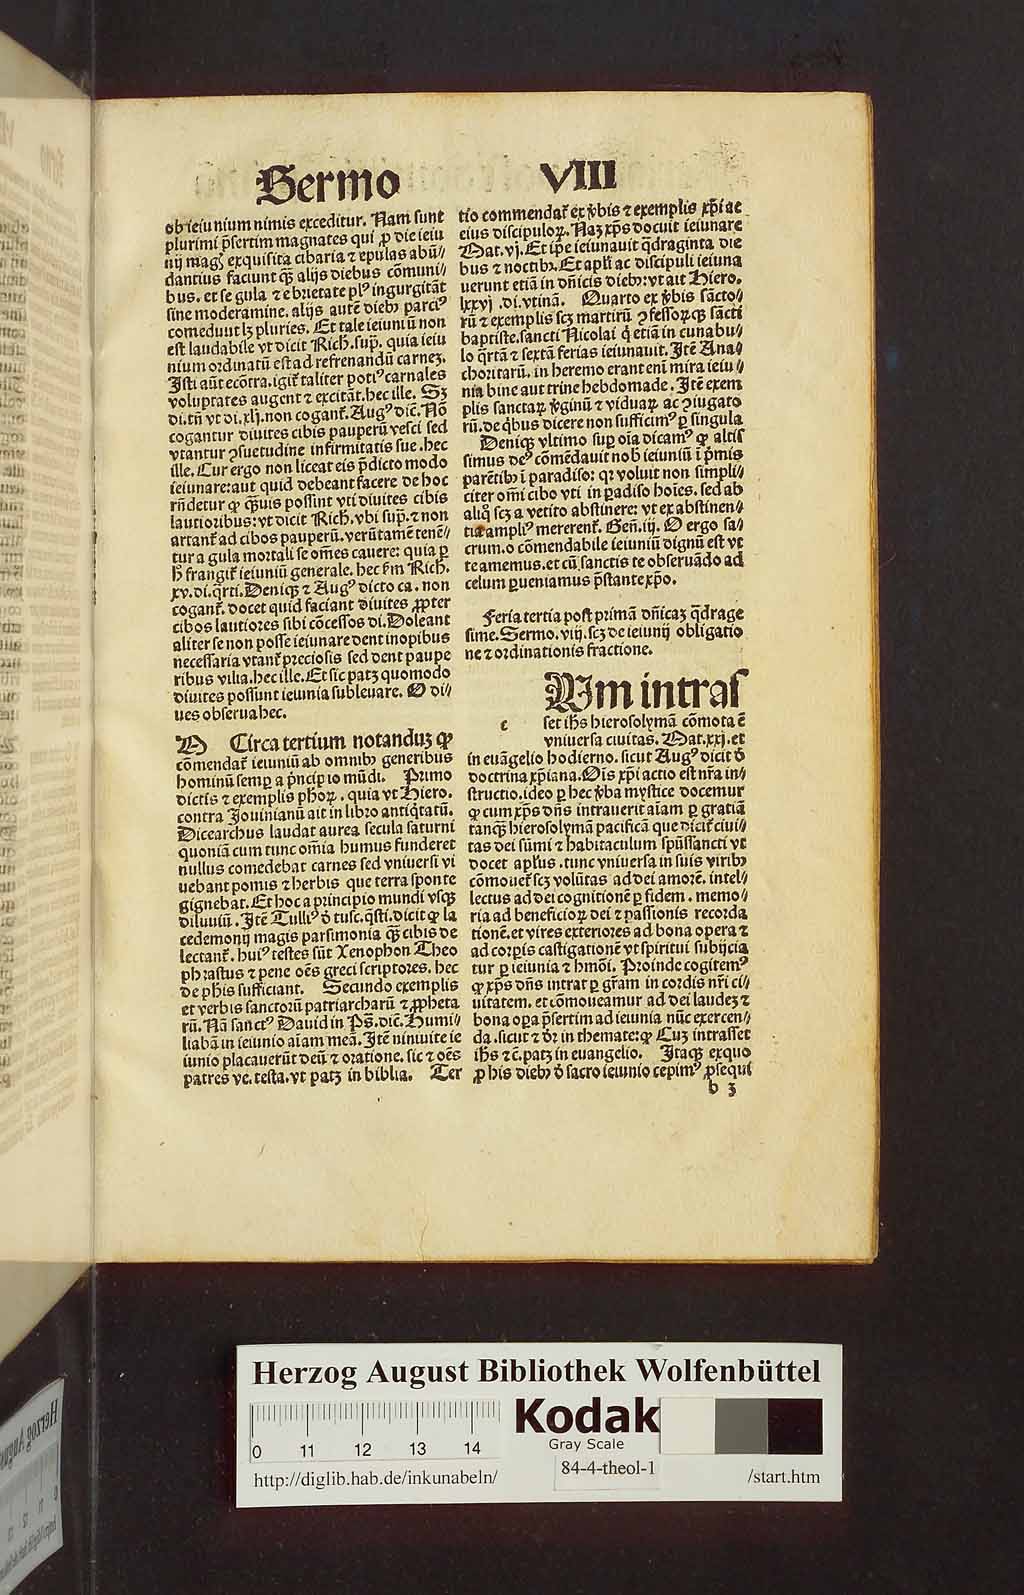 Sermo VIII
ob ieiunium nimis exceditur. Nam sunt
plurimi p̄sertim magnates qui ꝓ die ieiu
nij magꝭ exquisita cibaria ⁊ epulas abū//
dantius faciunt qꝫ̄ alijs diebus cōmuni//
bus. et se gula ⁊ ebrietate plꝰ ingurgitāt
sine moderamine. alijs autē diebꝫ parciꝰ
comedunt lꝫ pluries. Et tale ieiuniū non
est laudabile vt dicit Rich. sup̄. quia ieiu
nium ordinatū est ad refrenandū carneꝫ.
Isti aūt ecōtra. igit̄ taliter potiꝰ carnales
voluptates augent ⁊ excitāt. hec ille. Sꝫ
di. tn̄ vt di. xlj. non cogant̄. Augꝰ dic̄. Nō
cogantur diuites cibis pauperū vesci sed
vtantur ꝯsuetudine infirmitatis sue. hec
ille. Cur ergo non liceat eis p̄dicto modo
ieiunare: aut quid debeant facere de hoc
rn̄detur ꝙ qꝫ̄uis possint vti diuites cibis
lautioribus: vt dicit Rich. vbi sup̄. ⁊ non
artant̄ ad cibos pauperū. verūtamē tenē//
tur a gula mortali se om̄es cauere: quia ꝑ
h̄ frangit̄ ieiuniū generale. hec ẜm Rich.
xv. di. q̄rti. Deniqꝫ ⁊ Augꝰ dicto ca. non
cogant̄. docet quid faciant diuites ꝓpter
cibos lautiores sibi cōcessos di. Doleant
aliter se non posse ieiunare dent inopibus
necessaria vtant̄ preciosis sed dent paupe
ribus vilia. hec ille. Et sic patꝫ quomodo
diuites possunt ieiunia subleuare. O di//
ues obserua hec.
Circa tertium notanduꝫ ꝙ
cōmendat̄ ieiuniū ab omnibꝫ generibus
hominū semꝑ a p̄ncipio mūdi. Primo
dictis ⁊ exemplis ph̄oꝝ. quia vt Hiero.
contra Jouinianū ait in libro antiq̄tatū.
Dicearchus laudat aurea secula saturni
quoniā cum tunc om̄ia humus funderet
nullus comedebat carnes sed vniuersi vi
uebant pomis ⁊ herbis que terra sponte
gignebat. Et hoc a principio mundi vsqꝫ
diluuiū. Itē Tulliꝰ ð tusc. q̄sti. dicit ꝙ la
cedemonij magis parsimonia qꝫ̄ cibis de
lectant̄. huiꝰ testes sūt Xenophon Theo
phrastus ⁊ pene oēs greci scriptores. hec
de ph̄is sufficiant. Secundo exemplis
et verbis sanctorū patriarcharū ⁊ ꝓpheta
rū. Nā sanctꝰ Dauid in Ps̄. dic̄. Humi//
liabā in ieiunio aīam meā. Itē niniuite ie
iunio placauerūt deū ⁊ oratione. sic ⁊ oēs
patres ve. testa. vt patꝫ in biblia. Ter
tio commendat̄ ex v̄bis ⁊ exemplis xp̄i ac
eius discipuloꝝ. Naꝫ xp̄s docuit ieiunare
Mat. vj. Et ip̄e ieiunauit q̄draginta die
bus ⁊ noctibꝫ. Et apl̄i ac discipuli ieiuna
uerunt etiā in dn̄icis diebꝫ: vt ait Hiero.
lxxvj .di. vtinā. Quarto ex v̄bis sācto//
rū ⁊ exemplis scꝫ martirū ꝯfessorꝫqꝫ sācti
baptiste. sancti Nicolai q̄ etiā in cunabu//
lo q̄rtā ⁊ sextā ferias ieiunauit. Itē Ana//
choritarū. in heremo erant eni mira ieiu//
nia bine aut trine hebdomade. Itē exem
plis sanctaꝝ v̄ginū ⁊ viduaꝝ ac ꝯiugato
rū. de q̄bus dicere non sufficimꝰ ꝑ singula
Deniqꝫ vltimo suꝑ oīa dicamꝰ ꝙ altis
simus deꝰ cōmēdauit nob̄ ieiuniū ī p̄mis
parētibꝫ ī paradiso: qꝛ voluit non simpli//
citer om̄i cibo vti in ꝑadiso hoīes. sed ab
aliq̄ scꝫ a vetito abstinere: vt ex abstinen//
tia ampliꝰ mererent̄. Gen̄. iij. O ergo sa//
crum. o cōmendabile ieiuniū dignū est vt
te amemus. et cū sanctis te obseruādo ad
celum ꝑueniamus p̄stante xp̄o.
Feria tertia post primā dn̄icaꝫ q̄drage
sime. Sermo. viij. scꝫ de ieiunij obligatio
ne ⁊ ordinationis fractione.
Um intras
c set ih̄s hierosolymā cōmota ē
vniuersa ciuitas. Mat. xxj. et
in euāgelio hodierno. sicut Augꝰ dicit ð
doctrina xp̄iana. Oīs xp̄i actio est nr̄a in//
structio. ideo ꝑ hec v̄ba mystice docemur
ꝙ cum xp̄s dn̄s intrauerit aīam ꝑ gratiā
tanqꝫ̄ hierosolymā pacificā que dicit̄ ciui//
tas dei sūmi ⁊ habitaculum spūssancti vt
docet apl̄us. tunc vniuersa in suis viribꝫ
cōmouet̄ scꝫ volūtas ad dei amorē. intel//
lectus ad dei cognitionē ꝑ fidem. memo//
ria ad beneficioꝝ dei ⁊ passionis recorda
tionē. et vires exteriores ad bona opera ⁊
ad corꝑis castigationē vt spiritui subijcia
tur ꝑ ieiunia ⁊ hm̄ōi. Proinde cogitemꝰ
ꝙ xp̄s dn̄s intrat ꝑ gr̄am in cordis nr̄i ci//
uitatem. et cōmoueamur ad dei laudeꝫ ⁊
bona oꝑa p̄sertim ad ieiunia nūc exercen//
da. sicut ⁊ d̄r in themate: ꝙ Cuꝫ intrasset
ih̄s ⁊c̄. patꝫ in euangelio. Itaqꝫ exquo
ꝓ his diebꝫ ð sacro ieiunio cepimꝰ ꝓsequi
b 3
Herzog August Bibliothek Wolfenbüttel
0 11 12 13 14
Kodak
Gray Scale
http://diglib.hab.de/inkunabeln/
84-4-theol-1
/start.htm